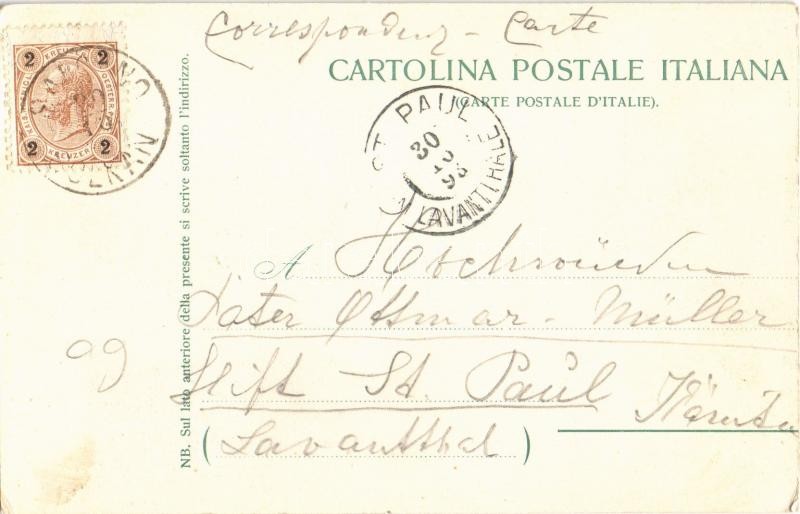 Correspondenz - Carte
CARTOLINA POSTALE ITALIANA
(CARTE POSTALE D'ITALIE).
2 KREUZER 2
2 KREUZER 2
ST. PAUL
30
LAVANTTHALE
A Hochwürden
Pater Ottmar - Müller
Stift St. Paul
Kärnten
(Lavantthal)
NB. Sul lato anteriore della presente si scrive soltanto l'indirizzo.
99